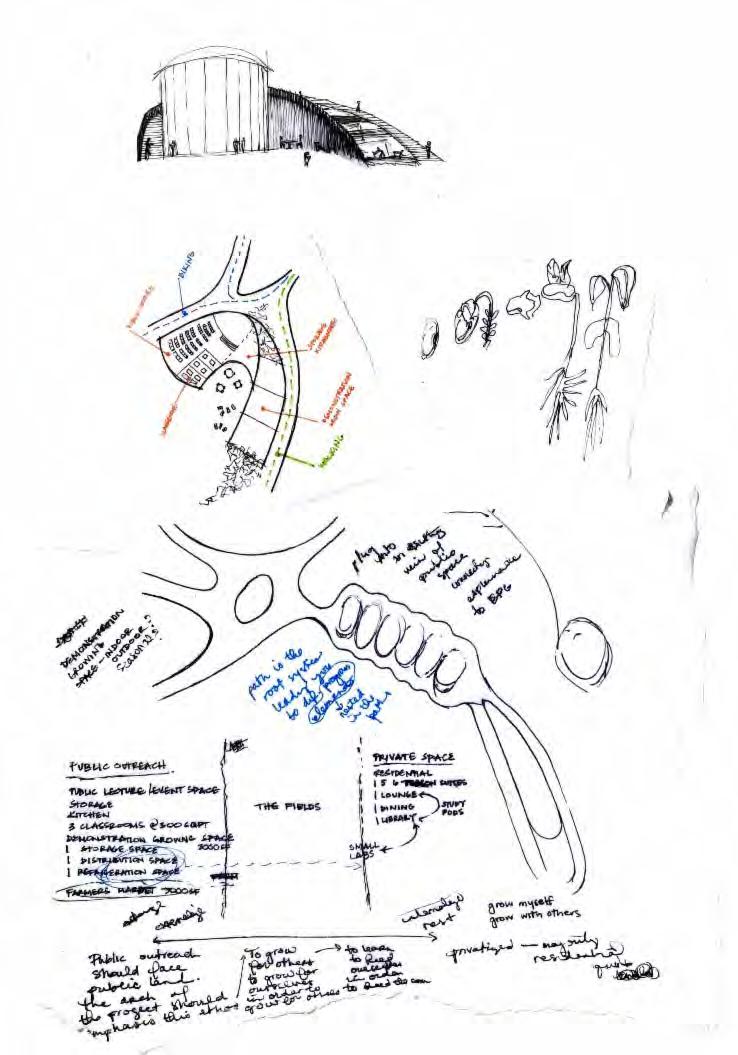 BIKING
DEMONSTRATION
SPACE
WALKING
plug into existing
vein of
public
space
connecting
esplanade
to BPG
DEMONSTRATION
GROWING
SPACE - INDOOR
OUTDOOR?
path is the
root system
leading you
to diff program
elements
nested
in the
path
PUBLIC OUTREACH
PUBLIC LECTURE/EVENT SPACE
STORAGE
KITCHEN
3 CLASSROOMS @ 500 SQFT
DEMONSTRATION GROWING SPACE
1 STORAGE SPACE 2000SF
1 DISTRIBUTION SPACE
1 REFRIGERATION SPACE
FARMERS MARKET 7000SF
THE FIELDS
PRIVATE SPACE
RESIDENTIAL
1 5 6 PERSON SUITES
1 LOUNGE
1 DINING
1 LIBRARY
STUDY
PODS
SMALL
LABS
internalize
rest
grow myself
grow with others
privatized — mainly
residential
Public outreach
should face
public land.
the arch of
the project should
emphasis this ethos
To grow
for others
to grow for
ourselves
in order to
grow for others
to learn
to feed
ourselves
in order
to feed the com